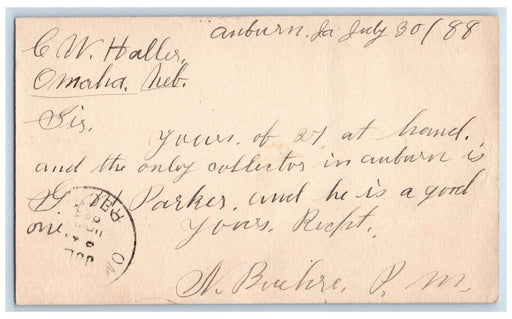 Auburn. Ia July 30/88
C W. Haller,
Omaha, Neb.
Sir,
Yours. of 27 at hand.
and the only collector in auburn is
Parker, and he is a good
one. Yours. Respt.
P. M.
JUL